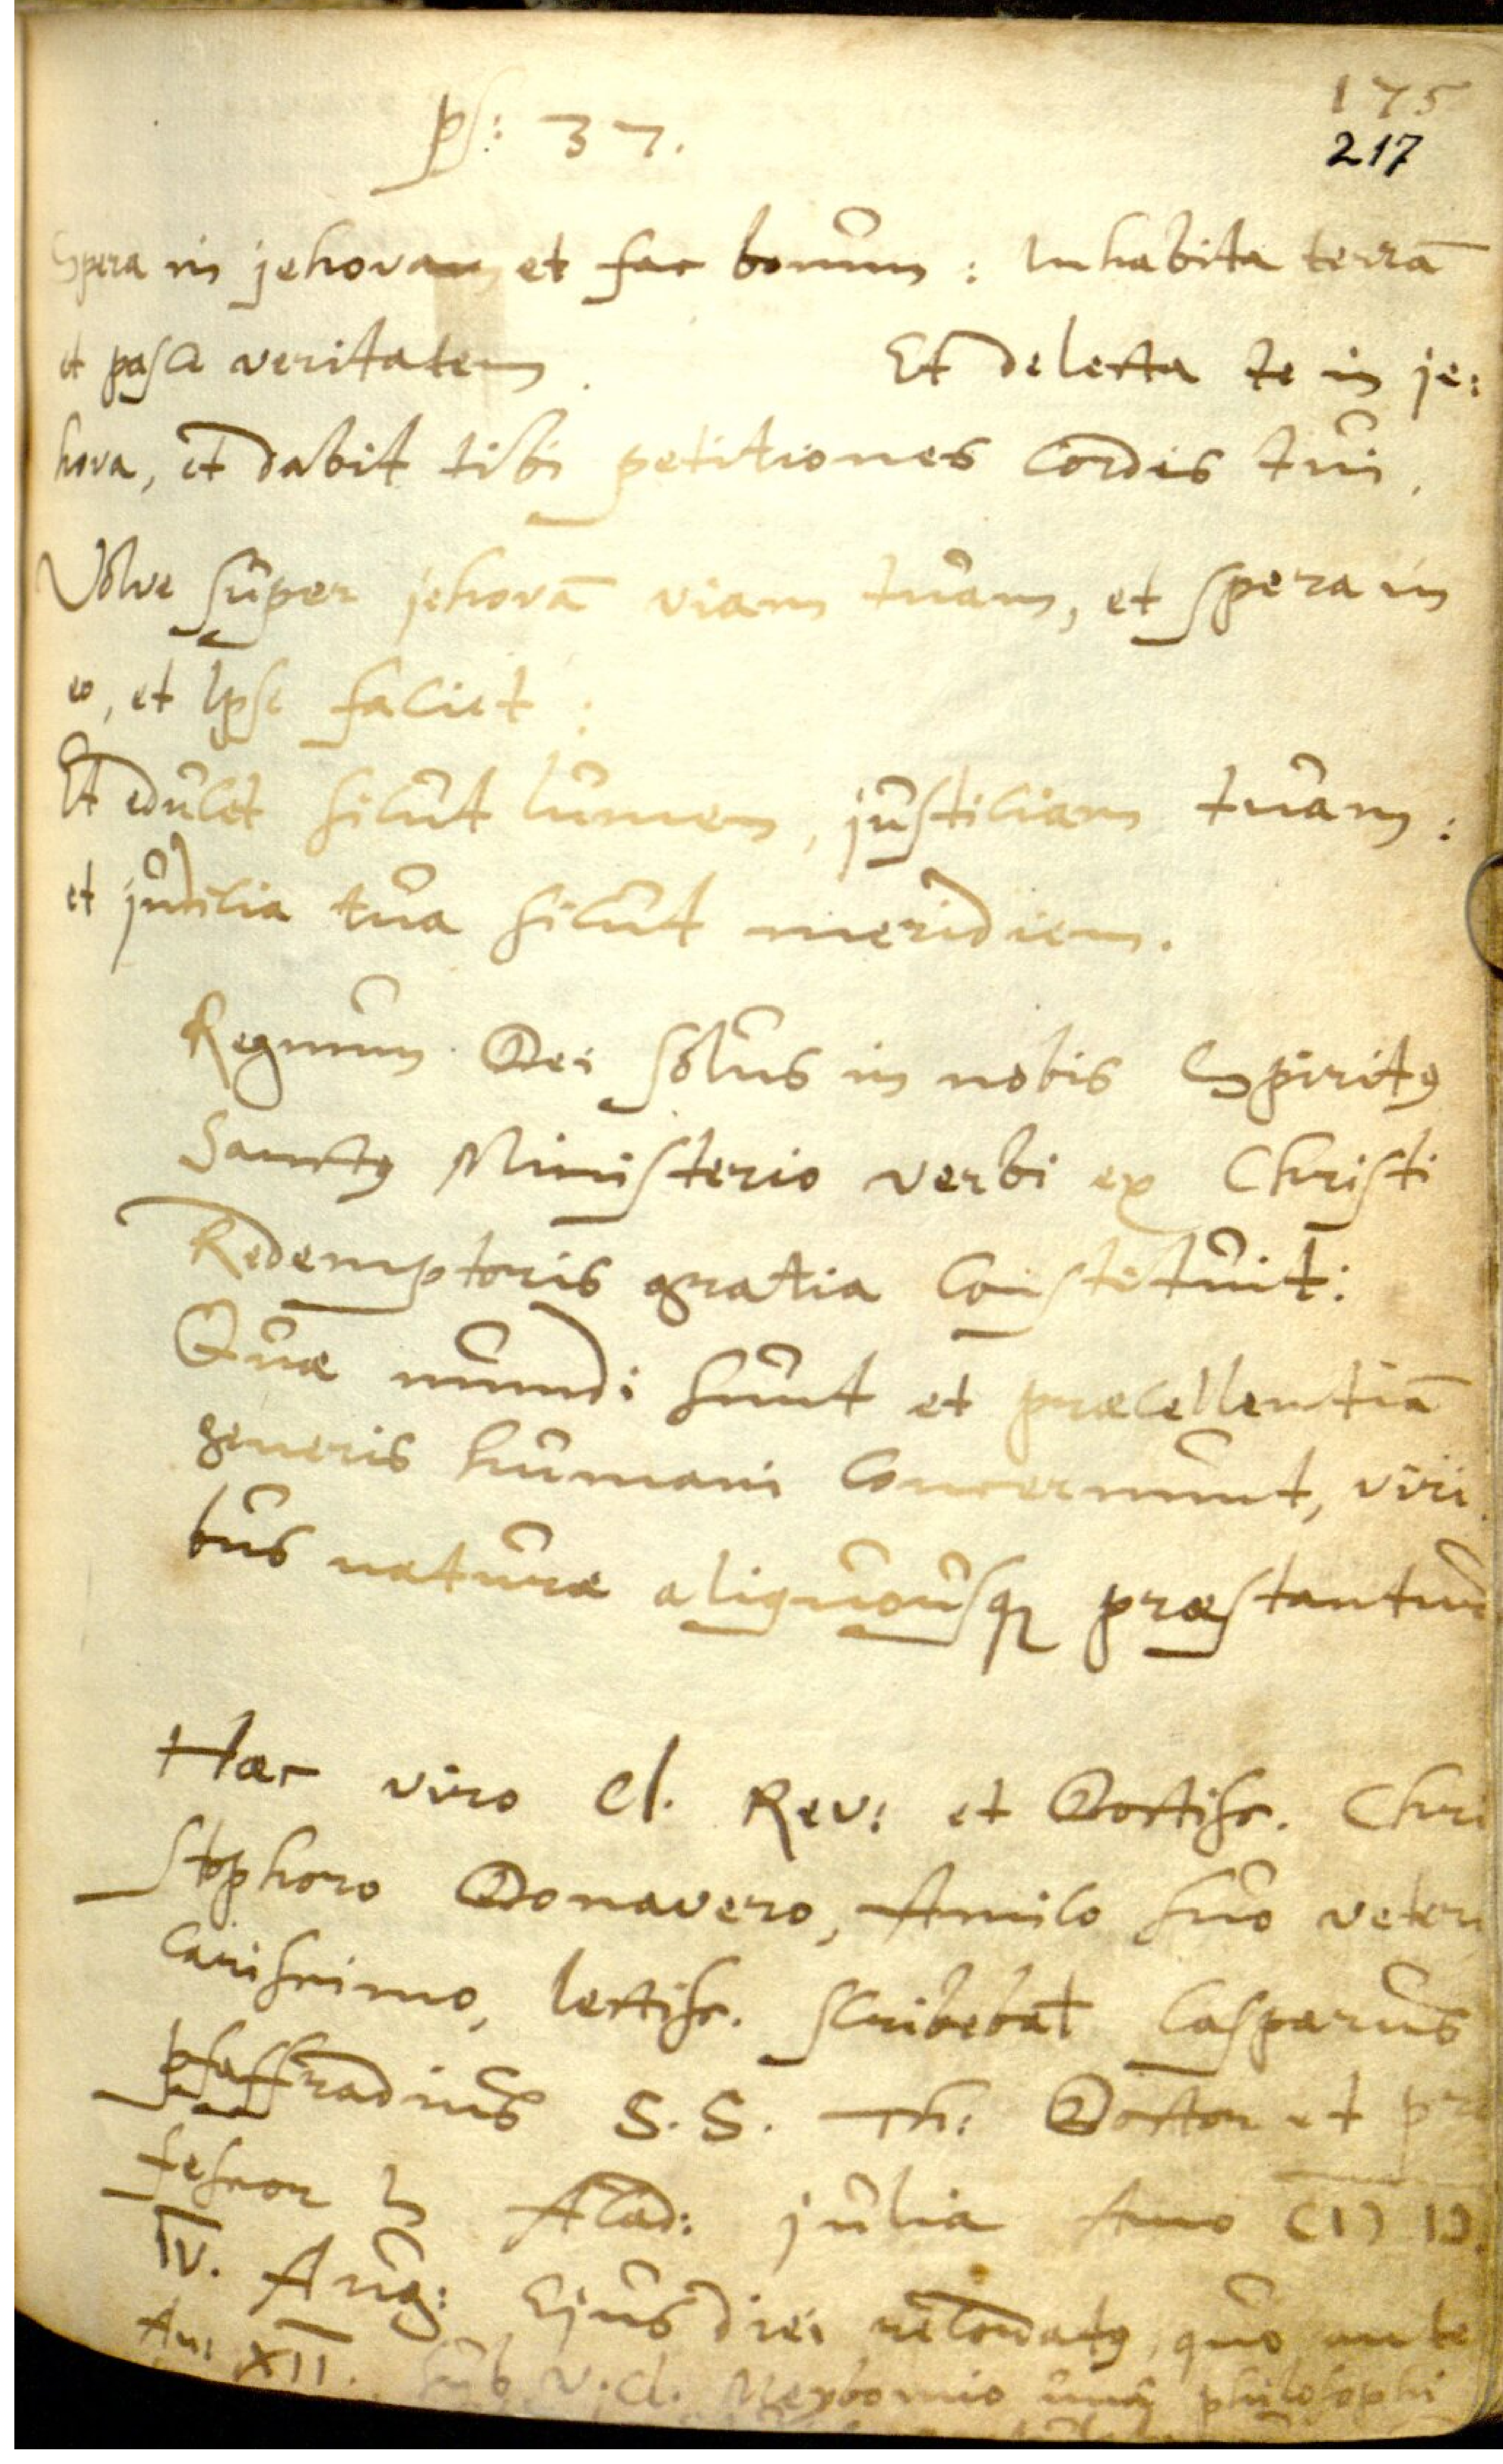 175
217
ps: 37.
Spera in jehovam et fac bonum : Inhabita terrā
et pasce veritatem . Et delecta te in je:
hova, et dabit tibi petitiones cordis tui.
Volve super jehovā viam tuam, et spera in
eo, et ipse faciet :
Et educet sicut lumen, justiciam tuam :
et judicia tua sicut meridiem.
Regnum Dei solus in nobis Spiritꝰ
Sanctꝰ Ministerio verbi ex Christi
Redemptoris gratia constituit:
Quæ mundi sunt et præcellentiā
generis humani concernunt, viri
bus naturæ aliquousqꝫ præstantur
Hæc viro Cl. Rev: et Doctiss. Chri
stophoro Donavero, Amico suo veteri
carissimo, lectiss. scribebat Casparus
Pfaffradius S.S. Th: Doctor et pro
fessor in Acad: julia Anno CIↃ IↃ.
IV. Aug: Ejus diei recordatꝰ, quo ante
An: XII. sub V. Cl. Meybomio philosophi